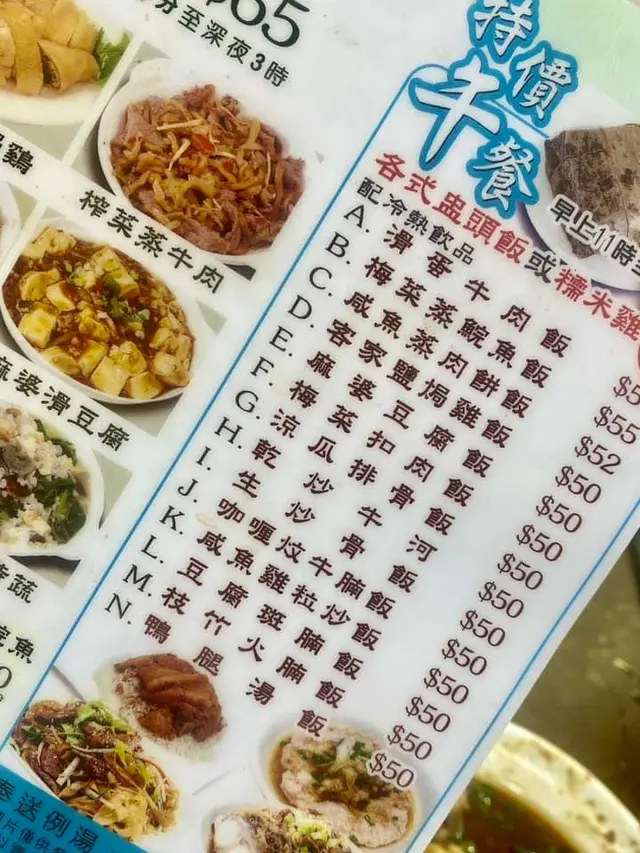 $65
分至深夜3時
鷄
榨菜蒸牛肉
麻婆滑豆腐
蔬
鯇魚
特價
牛餐
早上11時
各式盅頭飯或糯米雞
配冷熱飲品
A. 滑蛋牛肉飯 $5
B. 梅菜蒸鯇魚飯 $55
C. 咸魚蒸肉餅飯 $52
D. 客家鹽焗雞飯 $50
E. 麻婆豆腐飯 $50
F. 梅菜扣肉飯 $50
G. 涼瓜排骨飯 $50
H. 乾炒牛河 $50
I. 生炒骨飯 $50
J. 咖喱炆牛腩飯 $50
K. 咸魚雞粒炒飯 $50
L. 豆腐斑腩飯 $50
M. 枝竹火腩飯 $50
N. 鴨腿湯飯 $50
奉送例湯
片僅供